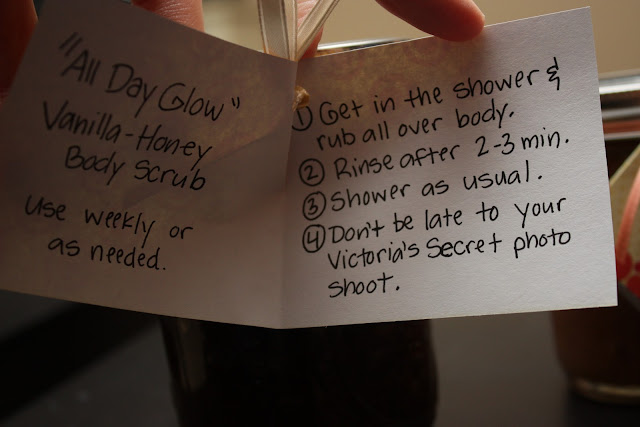 "All Day Glow"
Vanilla-Honey
Body Scrub
Use weekly or
as needed.
① Get in the shower &
rub all over body.
② Rinse after 2-3 min.
③ Shower as usual.
④ Don't be late to your
Victoria's Secret photo
shoot.